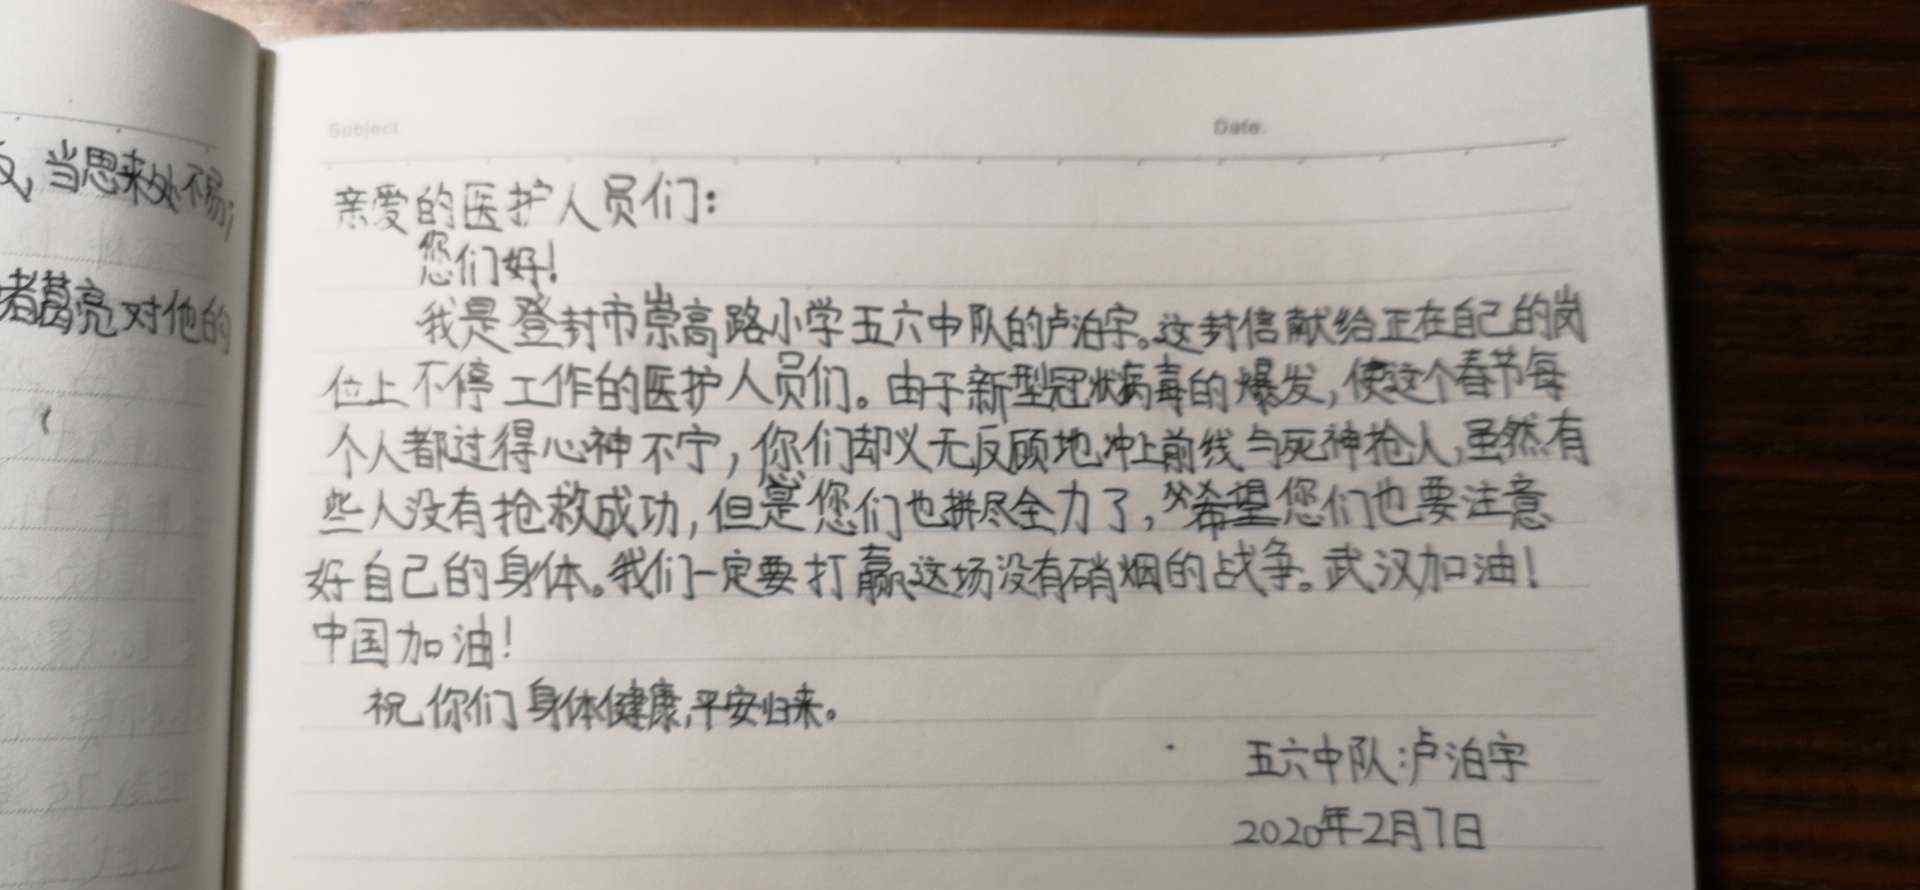 当思来处不易;
诸葛亮对他的
Subject
Date:
亲爱的医护人员们:
您们好!
我是登封市崇高路小学五六中队的卢泊宇。这封信献给正在自己的岗
位上不停工作的医护人员们。由于新型冠状病毒的爆发,使这个春节每
个人都过得心神不宁,你们却义无反顾地冲上前线与死神抢人,虽然有
些人没有抢救成功,但是您们也拼尽全力了,希望您们也要注意
好自己的身体。我们一定要打赢这场没有硝烟的战争。武汉加油!
中国加油!
祝你们身体健康,平安归来。
五六中队:卢泊宇
2020年2月7日